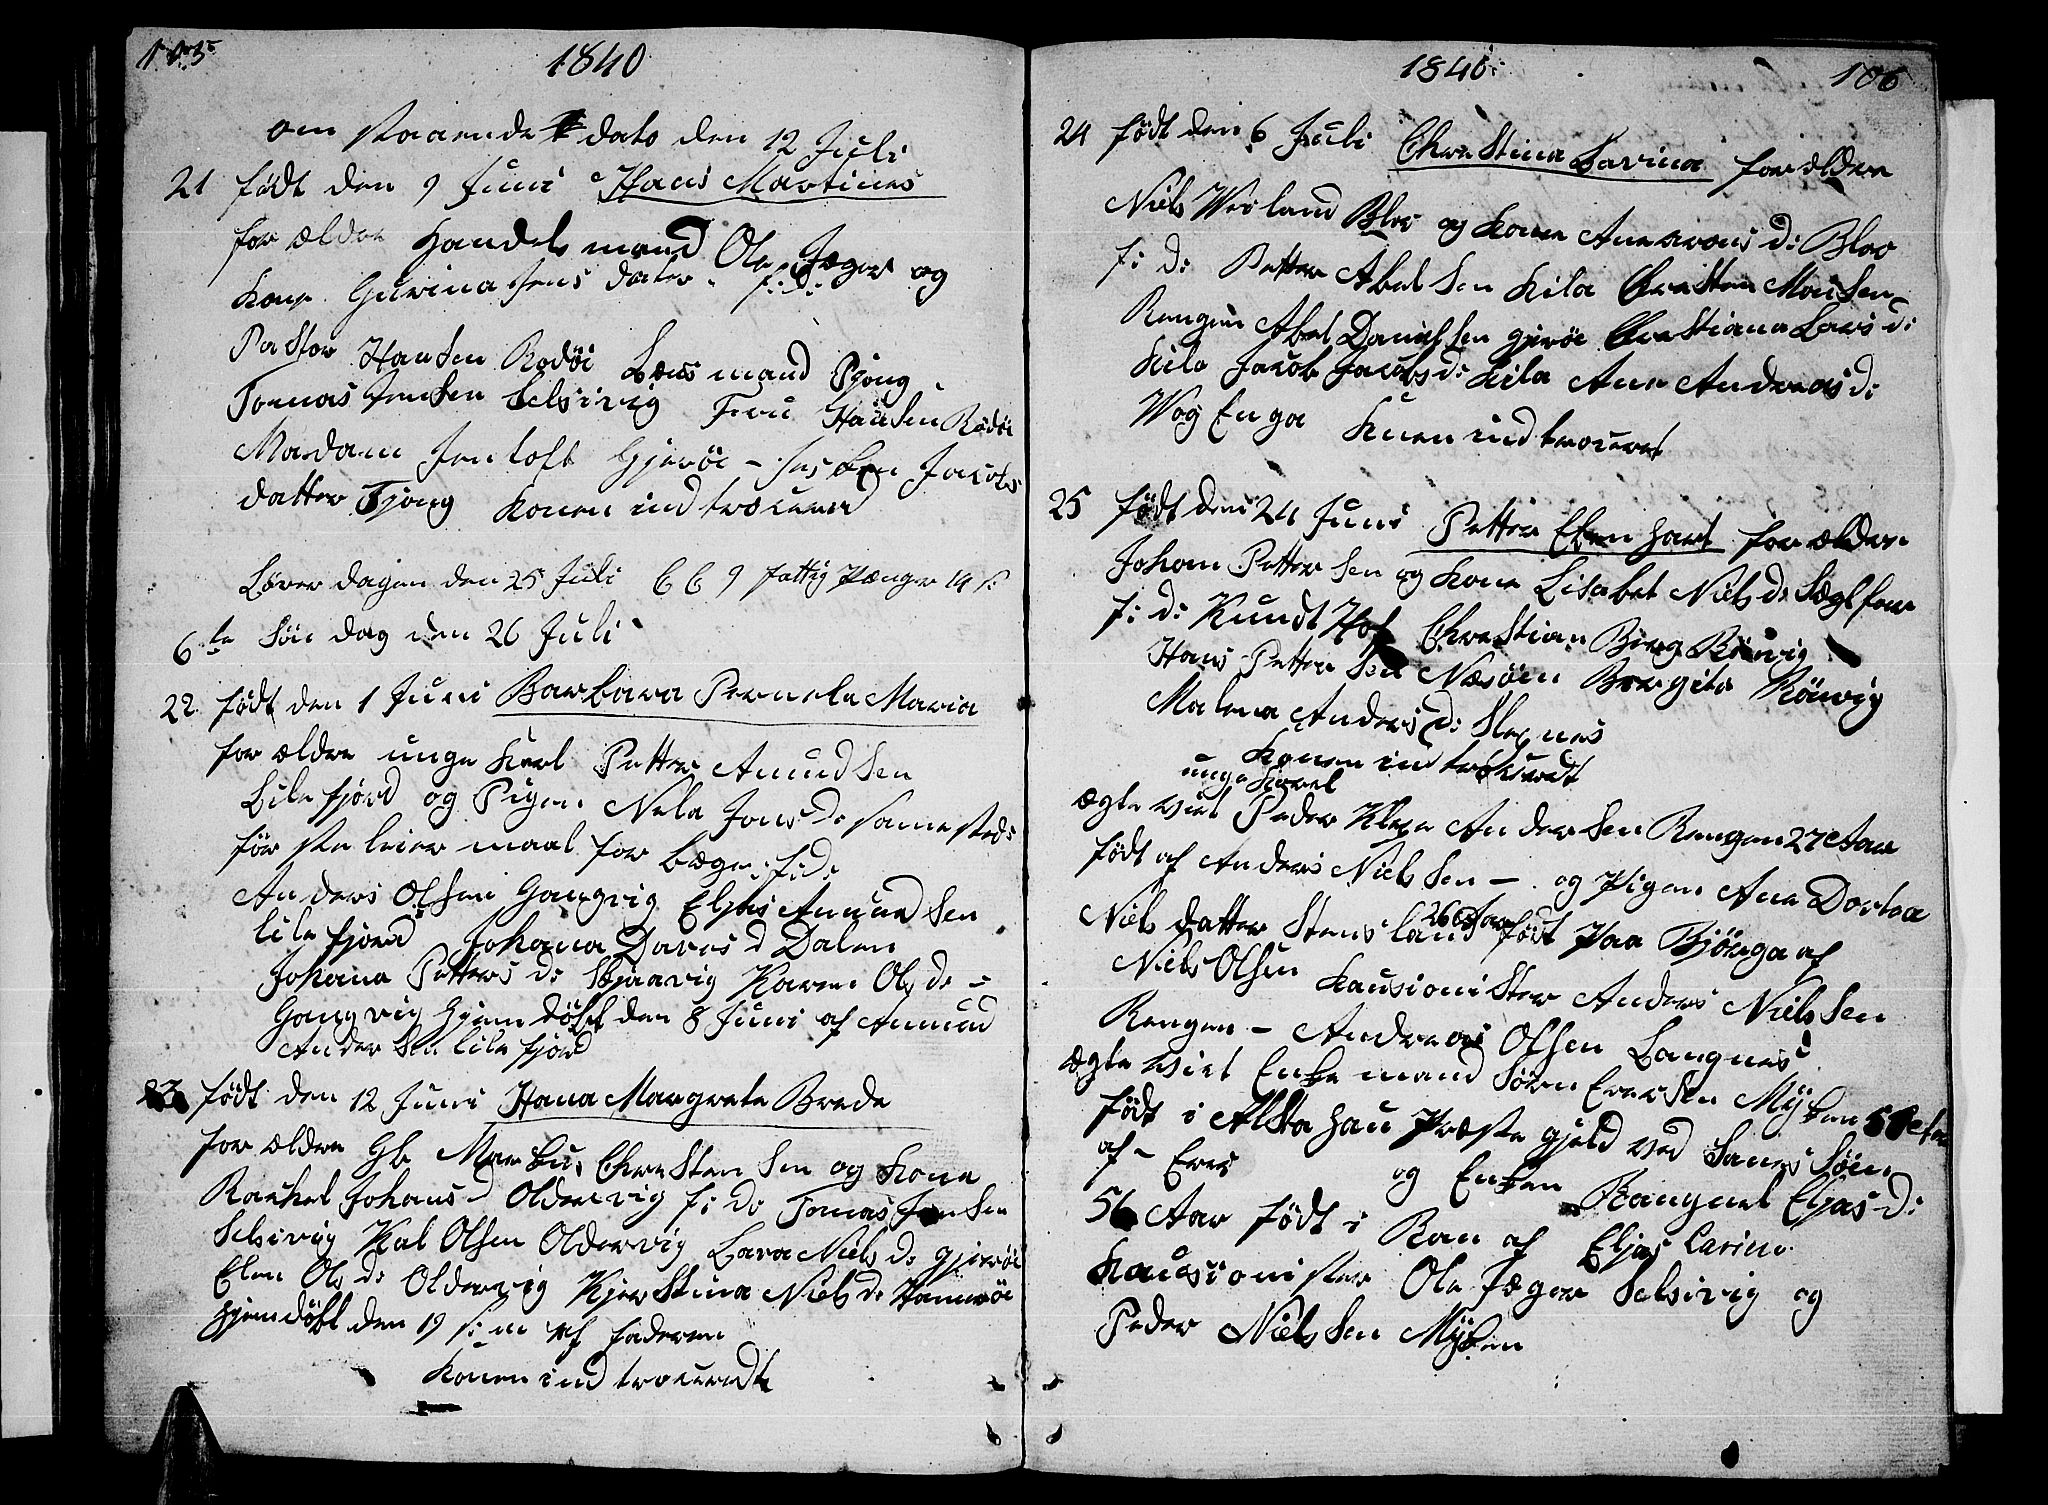 105
1840
om staaende dato den 12 Juli
21 født den 9 Juni Hans Martines
for ældre Handels mand Ole Jæger og
Kone Gurina Jens dater f: d:
Pastor Hansen Rodöi Lens mand Tjong
Tomas Jensen Selsivig Frue Hansen Rödöi
Madam Jentoft Gjeröe - Jacobs
datter Tjong Konen ind trolured
Löver dagen den 25 Juli 6 6 9 fattig Pænger 14 s:
6te Sön dag den 26 Juli
22 født den 1 Juni Barbara Pernela Maria
for ældre unge Karl Petter Amundsen
Lile fjord og Pigen Nela Jons d: samested:
förste leier maal for bægge: f: d:
Anders Olsen Gangvig Eljas Amundsen
Lile fjord Johana Davas d Dalen
Johana Petters d: Skjaavig Karen Ols d: -
Gangvig hjem döbt den 8 Juni af Amund
Andersen Lile fjord
23 født den 12 Juni Hana Margrete Breda
for ældre Gb Markus Chrestensen og Kone
Raakel Johans d Oldervig f: d: Tomas Jensen
Selsivig Kal Olsen Oldervig Lava Niels d: Gjeröi
Elen Ols d: Oldervig Kjerstina Niels d: Hamröe
hjemdöbt den 19 s: m af faderen
Konen ind troluredt
1840
106
24 født den 6 Juli Chrestina Lavina for ældre
Niels Verland Blox og Kone Ane Arons d: Blox
f: d: Petter Abelsen Kila Chresten Monsen
Rengen Abel Danielsen Gjeröe Chrestiana Lars d:
Kila Jacob Jacobs d: Kila Ane Andreas d:
Vog Enga Konen ind troluret
25 født den 24 Juni Petter Eben hart for ældre
Johan Pettersen og Kone Lisabet Niels d: Sægl
f: d: Kundt Hof Chrestian Berg Rönvig
Hans Pettersen Nesöien Bergita Rönvig
Malena Anders d: Slexnes
Konen ind troluredt
unge Karel
ægte viet Peder Klexe Andersen Rengen 27 Aar
født af Anders Nielsen - og Pigen Ane Dortea
Niels datter Stensland 26 Aar født paa Björnga af
Niels Olsen Kausionister Anders Nielsen
Rengen - Andreas Olsen Langnes
ægte viet Enkemand Sörn Eversen Myken
født i Alstahau Præste gjeld ved Sanes Söen
af - Ever og Enken Rangnel Eljas d:
56 Aar født i Ran af Eljas Larine
Kausionister Ole Jæger Selsivig og
Peder Nielsen Myken